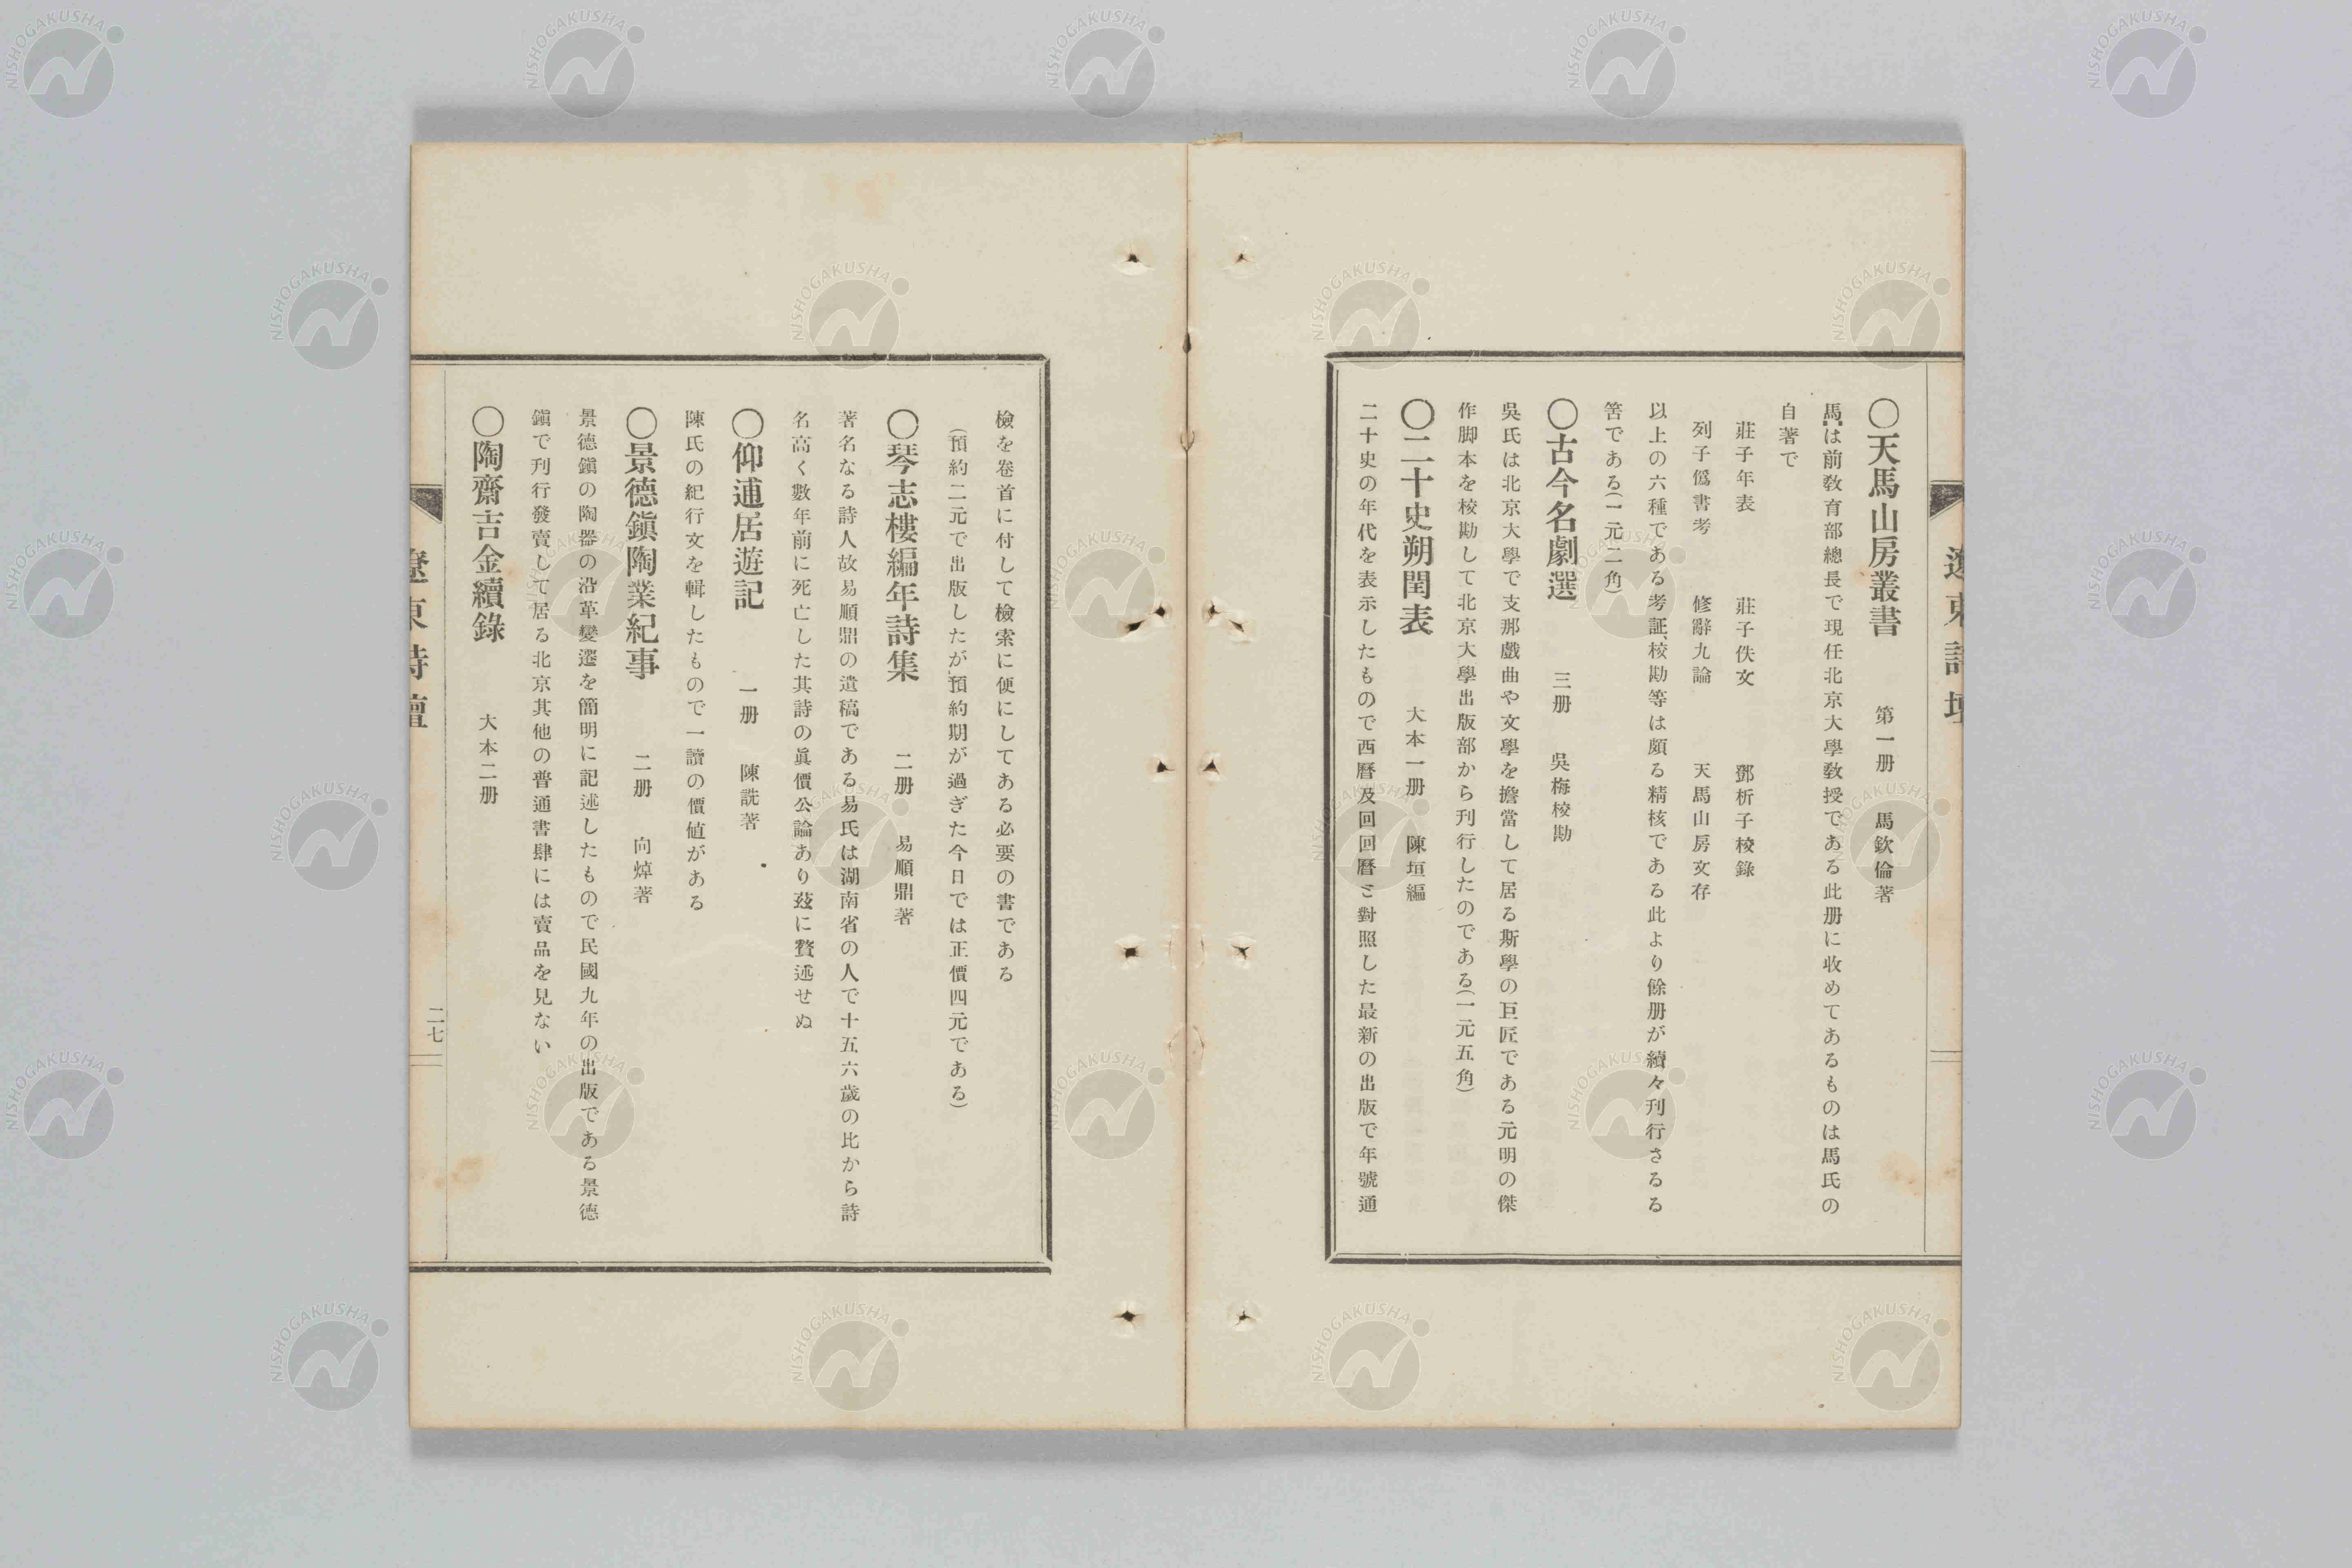 遼東詩壇
〇天馬山房叢書　第一册　馬欽倫著
馬は前敎育部總長で現任北京大學敎授である此册に收めてあるものは馬氏の
自著で
莊子年表　莊子佚文　鄧析子校錄
列子僞書考　修辭九論　天馬山房文存
以上の六種である考証、校勘等は頗る精核である此より餘册が續々刊行さるる
筈である(一元二角)
〇古今名劇選　三册　吳梅校勘
吳氏は北京大學で支那戲曲や文學を擔當して居る斯學の巨匠である元明の傑
作脚本を校勘して北京大學出版部から刊行したのである(一元五角)
〇二十史朔閏表　大本一册　陳垣編
二十史の年代を表示したもので西曆及回回曆と對照した最新の出版で年號通
檢を卷首に付して檢索に便にしてある必要の書である
(預約二元で出版したが預約期が過ぎた今日では正價四元である)
〇琴志樓編年詩集　二册　易順鼎著
著名なる詩人故易順鼎の遺稿である易氏は湖南省の人で十五六歲の比から詩
名高く數年前に死亡した其詩の眞價公論あり玆に贅述せぬ
〇仰逋居遊記　一册　陳詵著
陳氏の紀行文を輯したもので一讀の價値がある
〇景德鎭陶業紀事　二册　向焯著
景德鎭の陶器の沿革變遷を簡明に記述したもので民國九年の出版である景德
鎭で刊行發賣して居る北京其他の普通書肆には賣品を見ない
〇陶齋吉金續錄　大本二册
遼東詩壇　二七
NISHOGAKUSHA